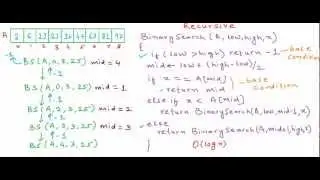 Recursive
A
0 1 2 3 4 5 6 7 8
BinarySearch (A, low, high, x)
{
if (low > high) return -1 - base condition
mid = low + (high-low)/2
if x == A[mid]
return mid
base condition
else if x < A[mid]
return BinarySearch(A, low, mid-1, x)
else
return BinarySearch(A, mid+1, high, x)
}
O(log n)
-1
BS (A, 0, 8, 25) mid = 4
↑ -1
BS (A, 0, 3, 25) mid = 1
↑ -1
BS (A, 2, 3, 25) mid = 2
↑ -1
BS (A, 3, 3, 25) mid = 3
↑ -1
BS (A, 4, 3, 25)